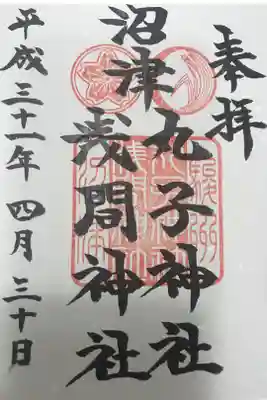 奉拝
沼津
丸子神社
浅間神社
平成三十一年四月三十日